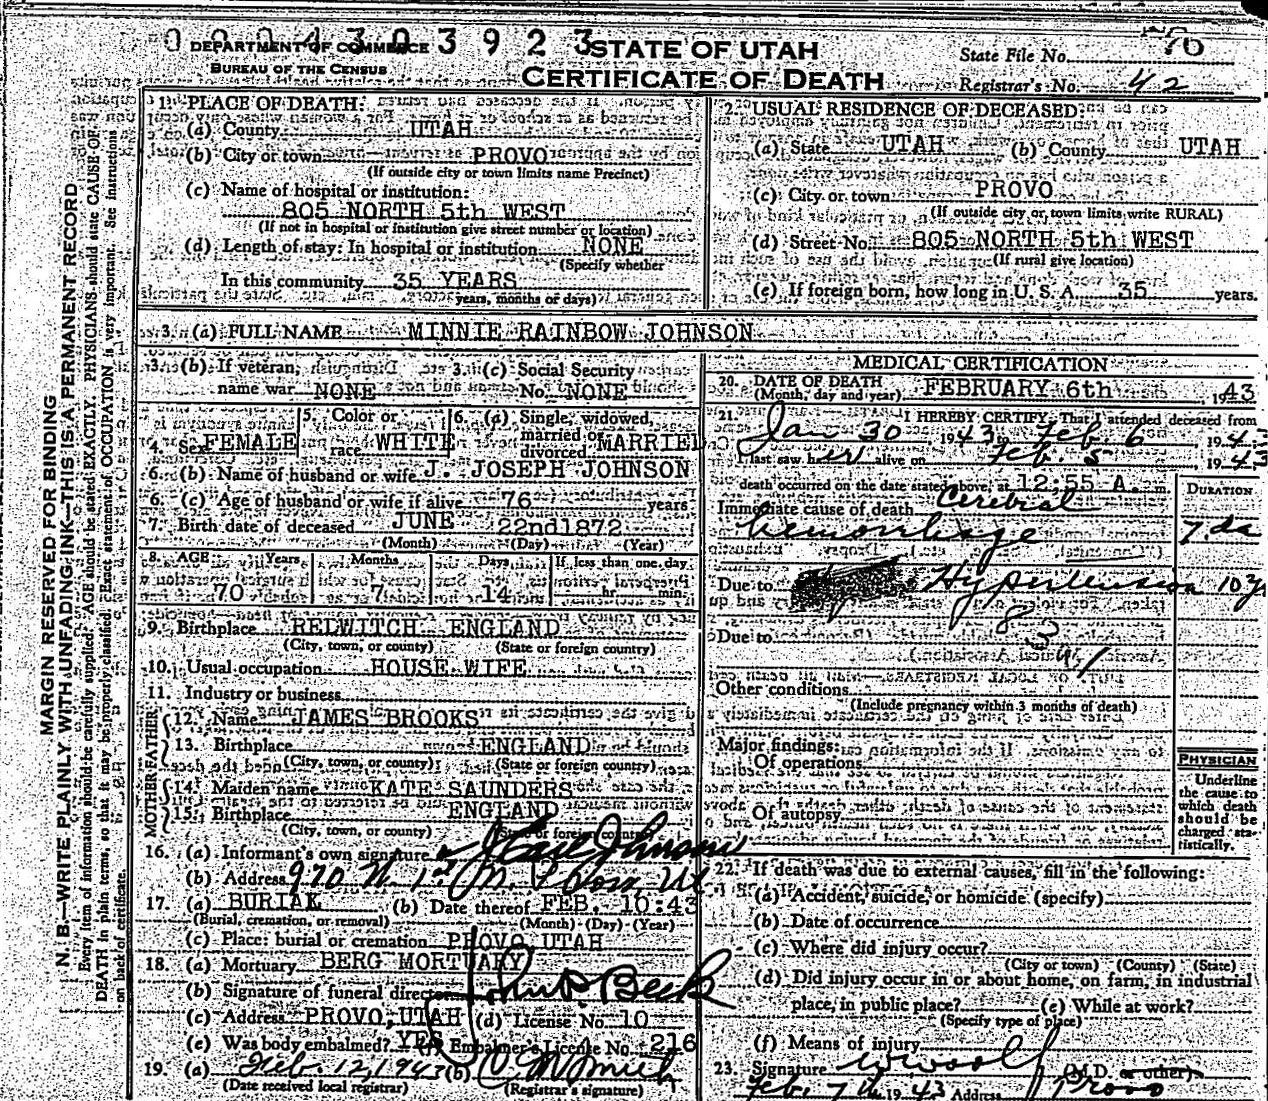 0004303923
DEPARTMENT OF COMMERCE
BUREAU OF THE CENSUS
STATE OF UTAH
CERTIFICATE OF DEATH
State File No. 76
Registrar's No. 42
MARGIN RESERVED FOR BINDING
N. B.—WRITE PLAINLY WITH UNFADING INK—THIS IS A PERMANENT RECORD
Every item of information should be carefully supplied. AGE should be stated EXACTLY. PHYSICIANS should state CAUSE OF
DEATH in plain terms, so that it may be properly classified. Exact statement of OCCUPATION is very important. See instructions
on back of certificate.
1. PLACE OF DEATH:
(a) County UTAH
(b) City or town PROVO
(If outside city or town limits name Precinct)
(c) Name of hospital or institution:
805 NORTH 5th WEST
(If not in hospital or institution give street number or location)
(d) Length of stay: In hospital or institution NONE
(Specify whether
In this community 35 YEARS
years, months or days)
2. USUAL RESIDENCE OF DECEASED:
(a) State UTAH (b) County UTAH
(c) City or town PROVO
(If outside city or town limits write RURAL)
(d) Street No. 805 NORTH 5th WEST
(If rural give location)
(e) If foreign born, how long in U. S. A. 35 years.
3. (a) FULL NAME MINNIE RAINBOW JOHNSON
3. (b) If veteran, name war NONE
3. (c) Social Security No. NONE
4. Sex FEMALE
5. Color or race WHITE
6. (a) Single, widowed, married or divorced MARRIED
6. (b) Name of husband or wife J. JOSEPH JOHNSON
6. (c) Age of husband or wife if alive 76 years
7. Birth date of deceased JUNE 22nd 1872
(Month) (Day) (Year)
8. AGE Years Months Days If less than one day
70 7 14 hr. min.
9. Birthplace REDWITCH ENGLAND
(City, town, or county) (State or foreign country)
10. Usual occupation HOUSE WIFE
11. Industry or business
FATHER
12. Name JAMES BROOKS
13. Birthplace ENGLAND
(City, town, or county) (State or foreign country)
MOTHER
14. Maiden name KATE SAUNDERS
15. ENGLAND
(City, town, or county) (State or foreign country)
16. (a) Informant's own signature J Earl Johnson
(b) Address 920 N. 1st
17. (a) BURIAL (b) Date thereof FEB. 10:43
(Burial, cremation, or removal) (Month) (Day) (Year)
(c) Place: burial or cremation PROVO UTAH
18. (a) Mortuary BERG MORTUARY
(b) Signature of funeral director
(c) Address PROVO, UTAH (d) License No. 10
(e) Was body embalmed? YES (f) Embalmer's License No. 216
19. (a) Feb. 12, 1943 (b)
(Date received local registrar) (Registrar's signature)
MEDICAL CERTIFICATION
20. DATE OF DEATH FEBRUARY 6th 1943
(Month, day and year)
21. I HEREBY CERTIFY, That I attended deceased from
Jan 30, 1943 to Feb 6, 1943
I last saw her alive on Feb. 5, 1943
death occurred on the date stated above, at 12:55 A. m.
DURATION
Immediate cause of death Cerebral
hemorrhage 7 da
Due to Hypertension 10 y
83
Due to
Other conditions
(Include pregnancy within 3 months of death)
Major findings:
Of operations
Of autopsy
PHYSICIAN
Underline
the cause to
which death
should be
charged sta-
tistically.
22. If death was due to external causes, fill in the following:
(a) Accident, suicide, or homicide (specify)
(b) Date of occurrence
(c) Where did injury occur?
(City or town) (County) (State)
(d) Did injury occur in or about home, on farm, in industrial
place, in public place? (e) While at work?
(Specify type of place)
(f) Means of injury
23. Signature (M.D. or other)
Feb. 7th 1943 Address Provo